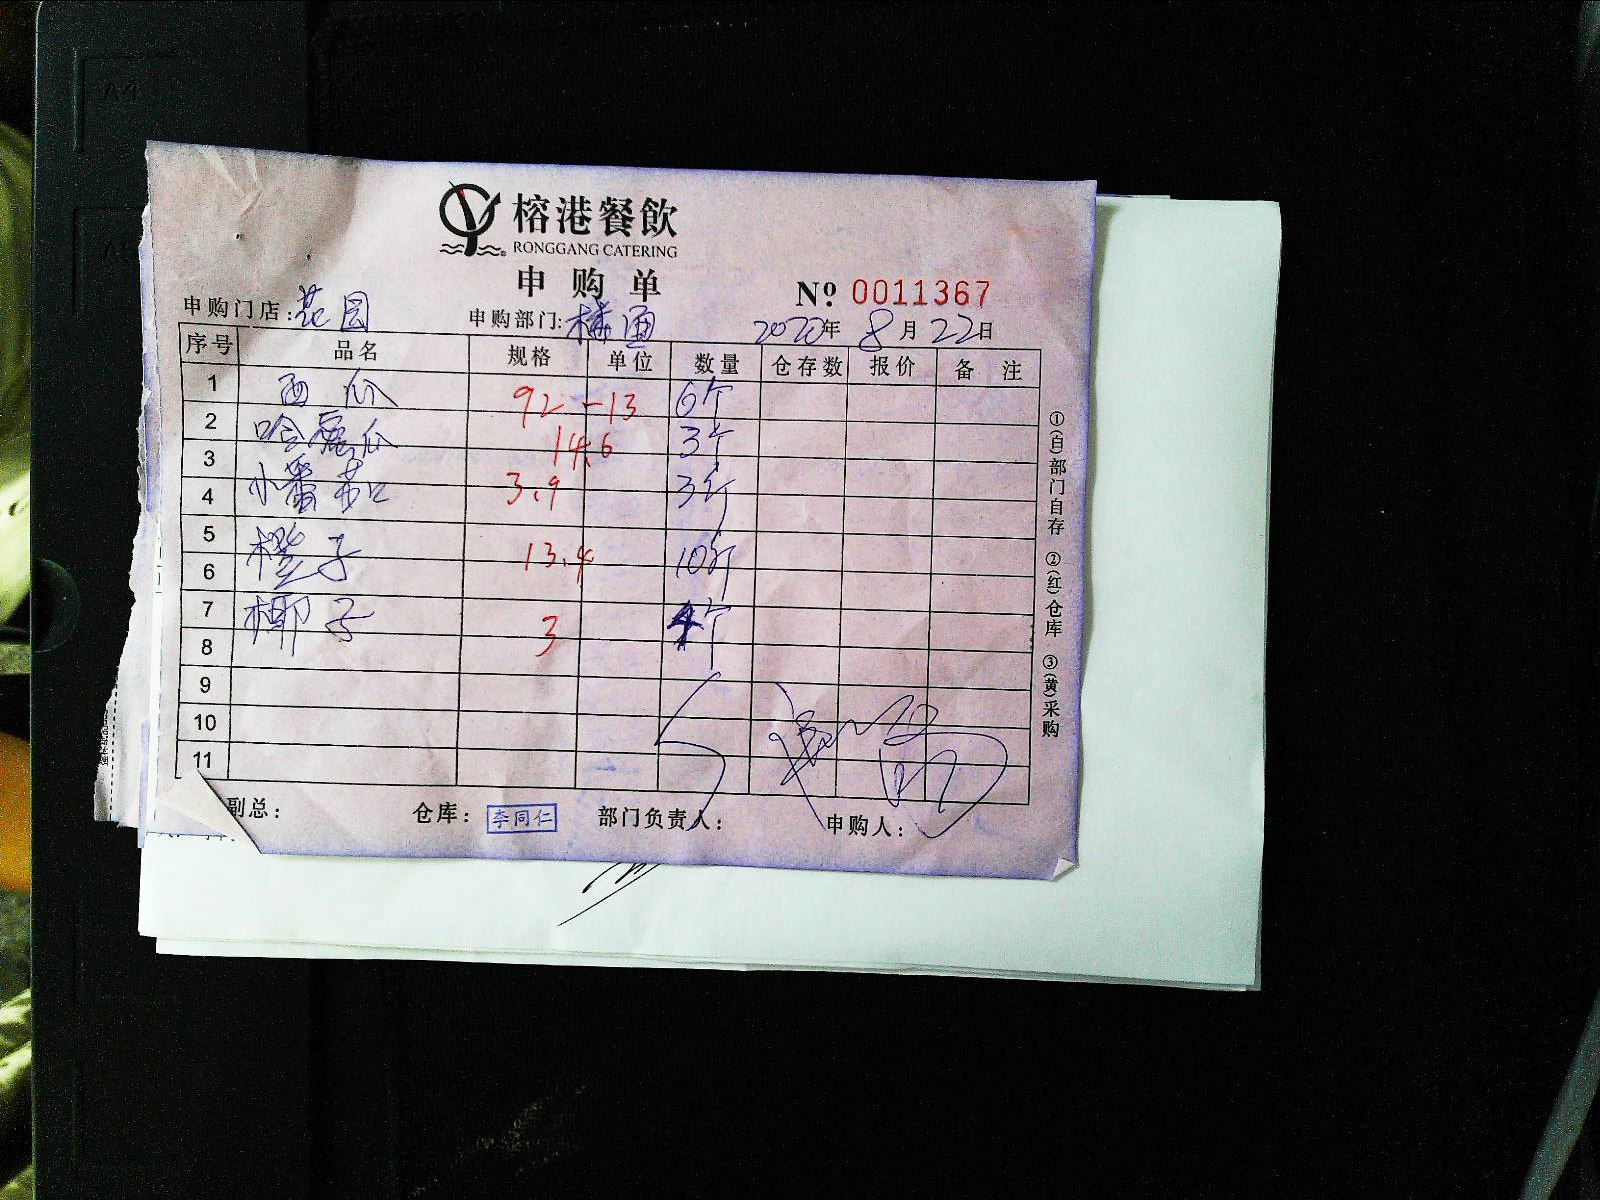 榕港餐飲
RONGGANG CATERING
申购单
№ 0011367
申购门店: 花园 申购部门: 楼面 2020年 8月 22日
序号 品名 规格 单位 数量 仓存数 报价 备注
1 西瓜 92 -13 6个
2 哈蜜瓜 14.6 3个
3 小番茄 3.9 3斤
4
5 橙子 13.4 10斤
6
7 椰子 3 个
8
9
10
11
副总: 仓库: 李同仁 部门负责人: 申购人:
①(白)部门自存 ②(红)仓库 ③(黄)采购